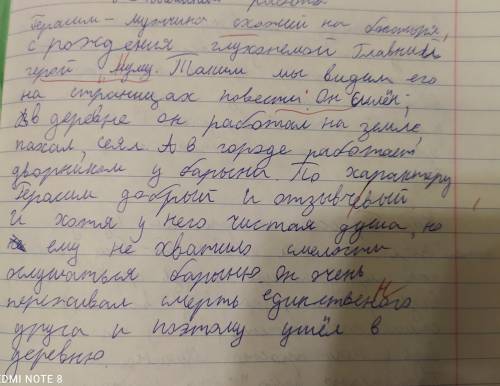 работа
Герасим - мужчина схожий на богатыря,
с рождения глухонемой Главный
герой "Муму. Таким мы видим его
на страницах повести. Он силён,
в деревне он работал на земле
пахал, сеял. А в городе работает
дворником у барыни. По характеру
Герасим добрый и отзывчевый
И хотя у него чистая душа, но
ему не хватило смелости
ослушаться барыню. Он очень
переживал смерть единственого
друга и поэтому ушёл в
деревню.
REDMI NOTE 8